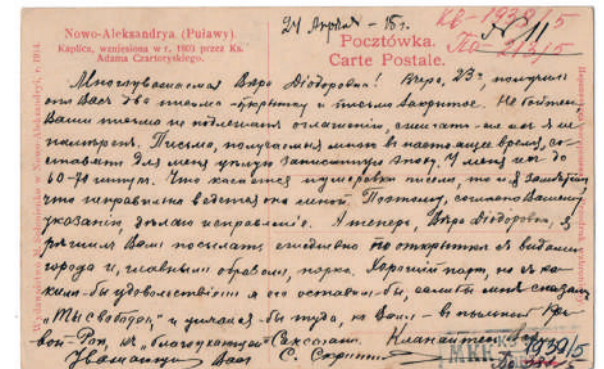 Nowo-Aleksandrya (Puławy).
Kaplica, wzniesiona w r. 1803 przez Ks.
Adama Czartoryskiego.
24 Апреля - 15 г.
КВ-1939/5
№ 11
Pocztówka.
Carte Postale.
Многоуважаемая Вѣра Діодоровна! Вчера, 23го, получилъ
отъ Васъ два письма - открытку и письмо закрытое. Не бойтесь,
Ваши письма не подлежатъ оглашенію, считать ихъ я не
намѣренъ. Письма, получаемыя мною въ настоящее время, со-
ставятъ для меня цѣлую записную книгу. У меня ихъ до
60-70 штукъ. Что касается нумеровки писемъ, то и я замѣтилъ,
что неправильно ведется она мной. Поэтому, согласно Вашему
указанію, дѣлаю исправленіе. А теперь, Вѣра Діодоровна, я
рѣшилъ Вамъ посылать ежедневно по открыткѣ съ видами
города и, главнымъ образомъ, парка. Хорошій паркъ, но съ ка-
кимъ-бы удовольствіемъ я его оставилъ-бы, если-бы мнѣ сказали
"Ты свободенъ" и умчался-бы туда, къ Вамъ - въ пыльный Кри-
вой-Рогъ, къ "благоухающей" Саксагани. Кланяйтесь
Уважающій Васъ С.
1939/5